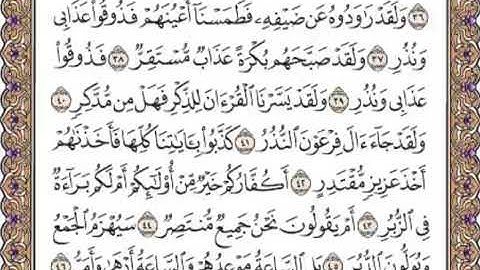 ﴿٣٦﴾ وَلَقَدْ رَٰوَدُوهُ عَن ضَيْفِهِۦ فَطَمَسْنَآ أَعْيُنَهُمْ فَذُوقُوا۟ عَذَابِى
وَنُذُرِ ﴿٣٧﴾ وَلَقَدْ صَبَّحَهُم بُكْرَةً عَذَابٌ مُّسْتَقِرٌّ ﴿٣٨﴾ فَذُوقُوا۟
عَذَابِى وَنُذُرِ ﴿٣٩﴾ وَلَقَدْ يَسَّرْنَا ٱلْقُرْءَانَ لِلذِّكْرِ فَهَلْ مِن مُّدَّكِرٍ ﴿٤٠﴾
وَلَقَدْ جَآءَ ءَالَ فِرْعَوْنَ ٱلنُّذُرُ ﴿٤١﴾ كَذَّبُوا۟ بِـَٔايَٰتِنَا كُلِّهَا فَأَخَذْنَٰهُمْ
أَخْذَ عَزِيزٍ مُّقْتَدِرٍ ﴿٤٢﴾ أَكُفَّارُكُمْ خَيْرٌ مِّنْ أُو۟لَٰٓئِكُمْ أَمْ لَكُم بَرَآءَةٌ
فِى ٱلزُّبُرِ ﴿٤٣﴾ أَمْ يَقُولُونَ نَحْنُ جَمِيعٌ مُّنتَصِرٌ ﴿٤٤﴾ سَيُهْزَمُ ٱلْجَمْعُ
وَيُوَلُّونَ ٱلدُّبُرَ ﴿٤٥﴾ بَلِ ٱلسَّاعَةُ مَوْعِدُهُمْ وَٱلسَّاعَةُ أَدْهَىٰ وَأَمَرُّ ﴿٤٦﴾